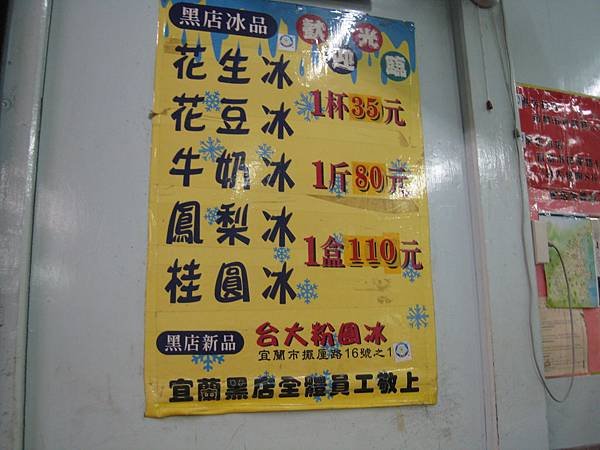 黑店冰品
歡迎光臨
花生冰
花豆冰
牛奶冰
鳳梨冰
桂圓冰
1杯35元
1斤80元
1盒110元
黑店新品
台大粉圓冰
宜蘭市擺厘路16號之1
宜蘭黑店全體員工敬上